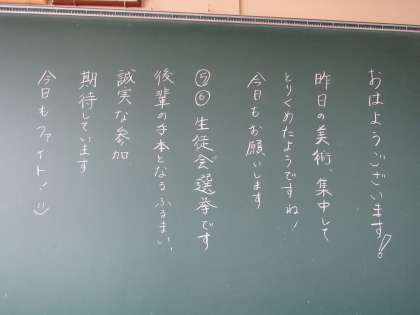 おはようございます!!
昨日の美術、集中して
とりくめたようですね!
今日もお願いします
⑤⑥生徒会選挙です
後輩の手本となるふるまい、
誠実な参加
期待しています
今日もファイト!